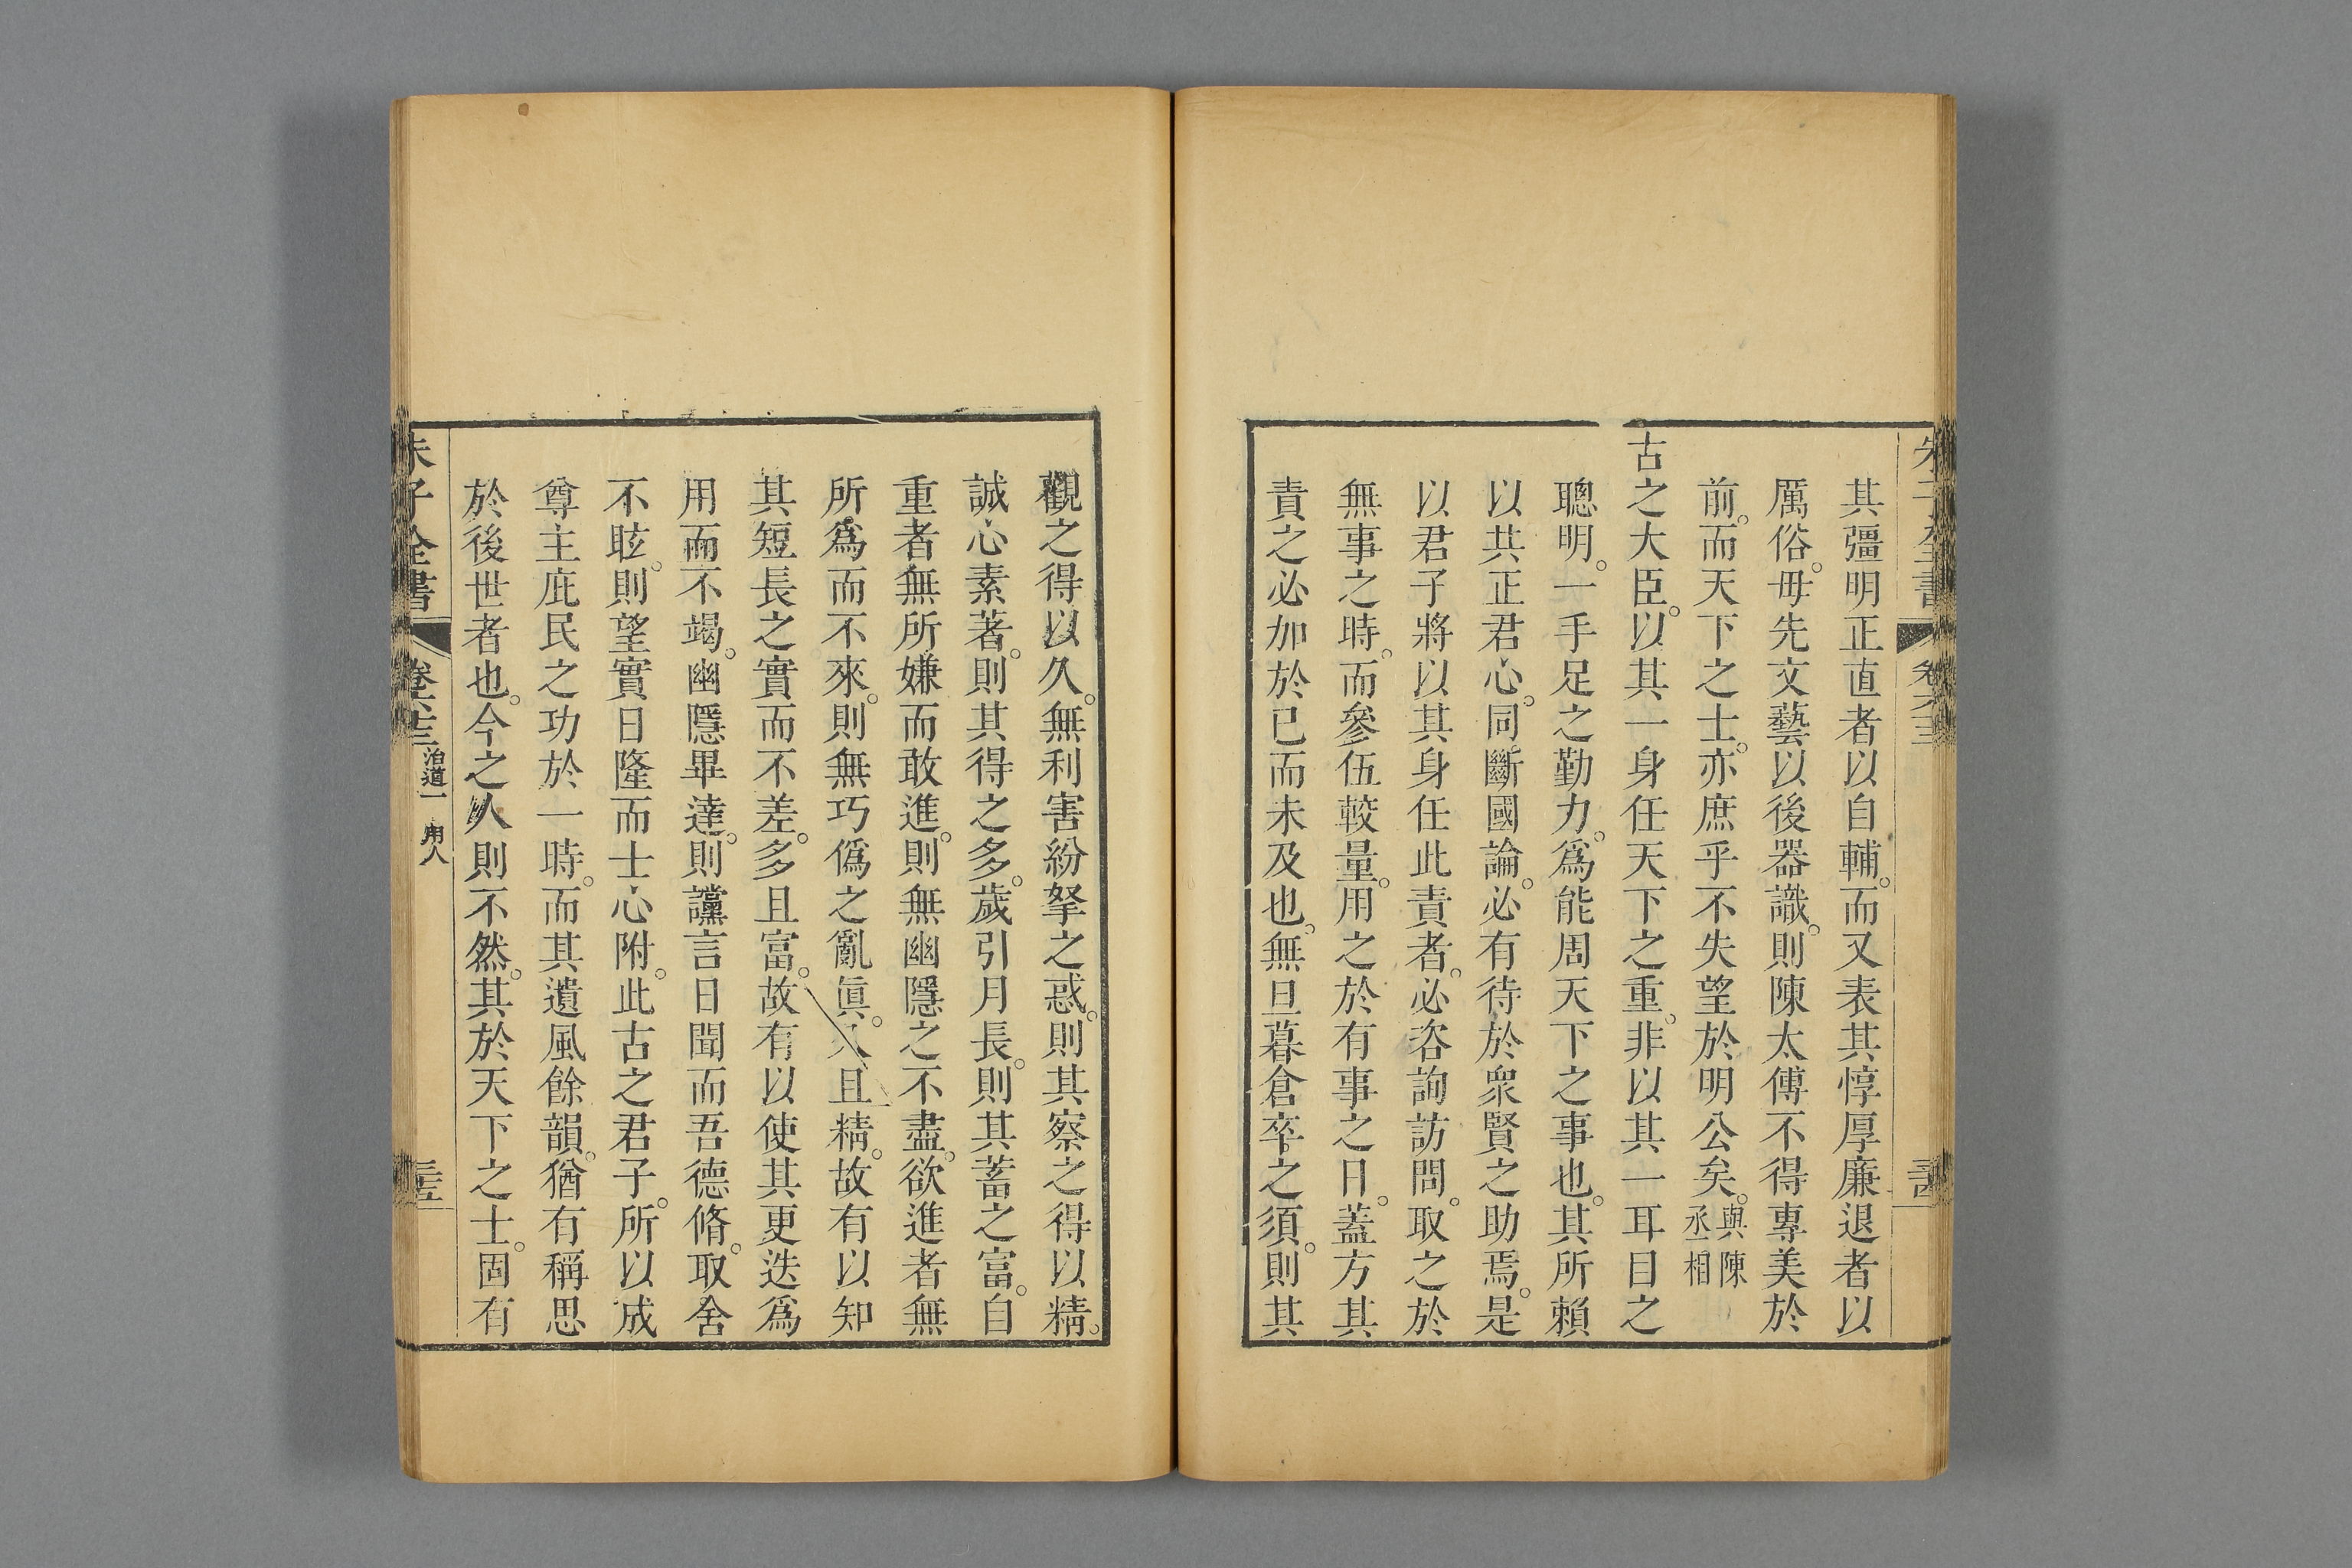 其彊明正直者以自輔。而又表其惇厚廉退者以
厲俗。毋先文藝以後器識。則陳太傅不得專美於
前。而天下之士。亦庶乎不失望於明公矣。與陳丞相
古之大臣。以其一身任天下之重。非以其一耳目之
聰明。一手足之勤力。爲能周天下之事也。其所賴
以共正君心。同斷國論。必有待於衆賢之助焉。是
以君子將以其身任此責者。必咨詢訪問。取之於
無事之時。而參伍較量。用之於有事之日。蓋方其
責之必加於已而未及也。無旦暮倉卒之須。則其
觀之得以久。無利害紛拏之惑。則其察之得以精。
誠心素著。則其得之多。歲引月長。則其蓄之富。自
重者無所嫌而敢進。則無幽隱之不盡。欲進者無
所爲而不來。則無巧僞之亂眞。久且精。故有以知
其短長之實而不差。多且富。故有以使其更迭爲
用而不竭。幽隱畢達。則讜言日聞而吾德脩。取舍
不眩。則望實日隆而士心附。此古之君子。所以成
尊主庇民之功於一時。而其遺風餘韻。猶有稱思
於後世者也。今之人則不然。其於天下之士。固有
朱子全書 卷六十三 治道一 用人 三五